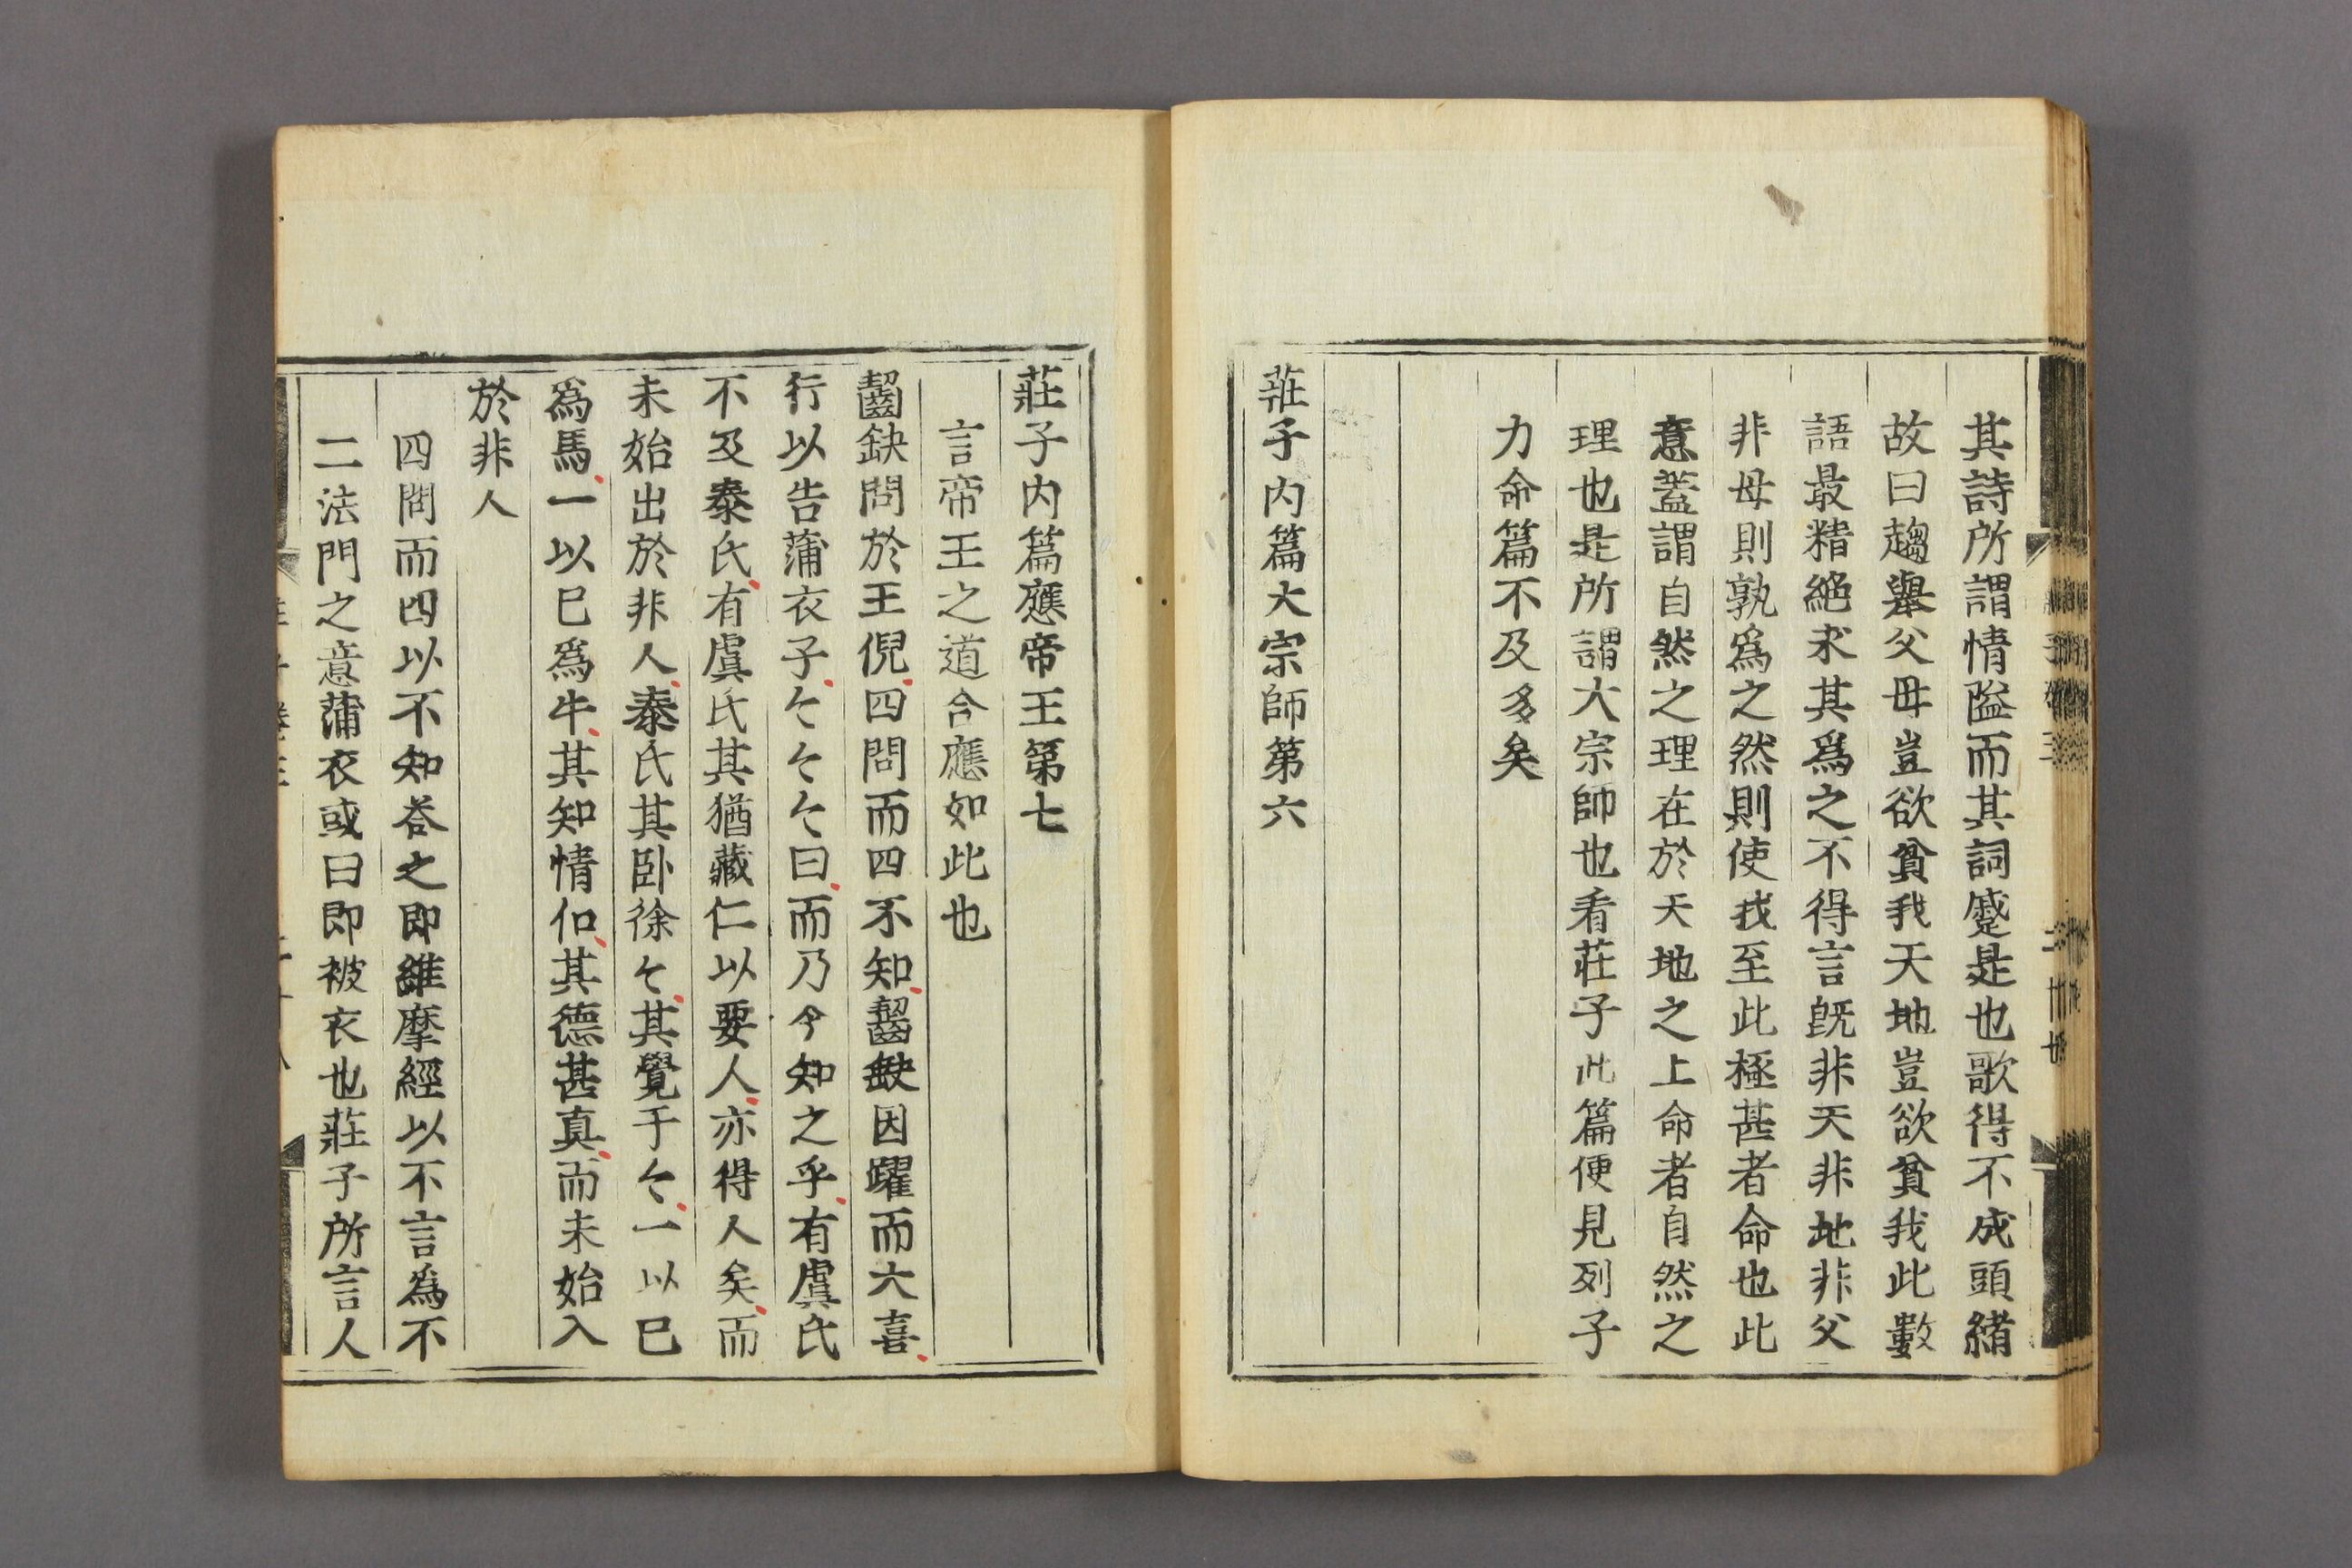 其詩所謂情隘而其詞蹙是也歌得不成頭緒
故曰趨舉父母豈欲貧我天地豈欲貧我此數
語最精絕求其爲之不得言旣非天非地非父
非母則孰爲之然則使我至此極甚者命也此
意蓋謂自然之理在於天地之上命者自然之
理也是所謂大宗師也看莊子此篇便見列子
力命篇不及多矣
莊子內篇大宗師第六
莊子內篇應帝王第七
言帝王之道合應如此也
齧缺問於王倪四問而四不知齧缺因躍而大喜
行以告蒲衣子々々々曰而乃今知之乎有虞氏
不及泰氏有虞氏其猶藏仁以要人亦得人矣而
未始出於非人泰氏其臥徐々其覺于々一以已
爲馬一以已爲牛其知情信其德甚真而未始入
於非人
四問而四以不知答之即維摩經以不言爲不
二法門之意蒲衣或曰即被衣也莊子所言人